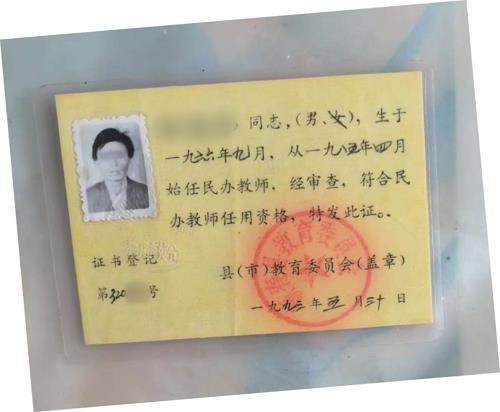 同志，（男、女），生于
一九六六年九月，从一九八五年四月
始任民办教师，经审查，符合民
办教师任用资格，特发此证。
证书登记
第320 号
县（市）教育委员会（盖章）
一九九三年五月三十日
教育委员